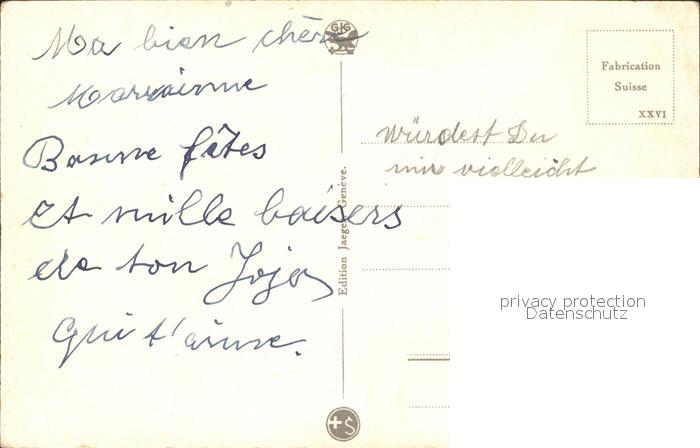 Ma bien chère
Marrainne
Bonne fêtes
Et mille baisers
de ton Jojo
Qui t'aime.
GJG
Edition Jaeger, Genève.
Fabrication
Suisse
XXVI
Würdest Du
mir vielleicht
privacy protection
Datenschutz